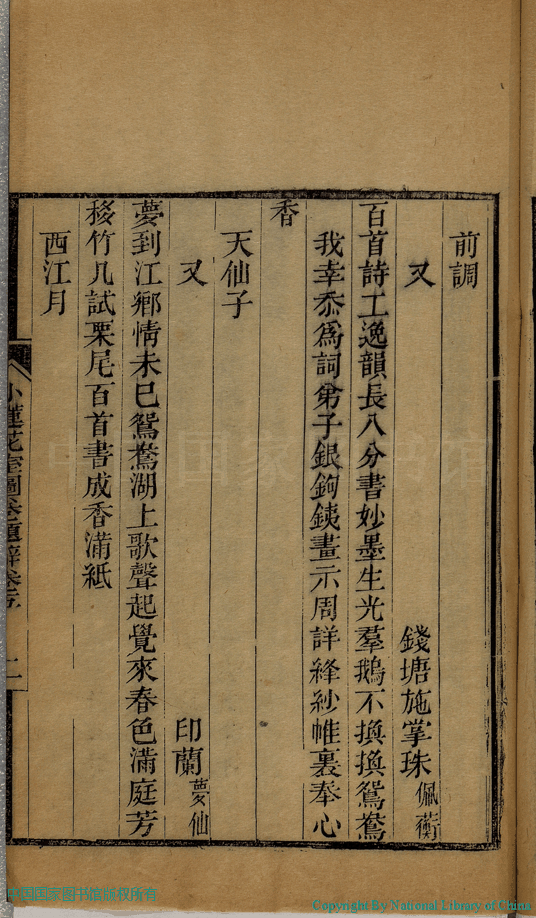 前調
又 錢塘施掌珠佩蘅
百首詩工逸韻長八分書妙墨生光羣鵝不換換鴛鴦
我幸忝為詞弟子銀鉤銕畫示周詳絳紗帷裏奉心
香
天仙子
又 印蘭夢仙
夢到江鄉情未已鴛鴦湖上歌聲起覺來春色滿庭芳
移竹几試栗尾百首書成香滿紙
西江月
小蓮花室圖卷題辭卷二 二
中国国家图书馆
中国国家图书馆版权所有
Copyright By National Library of China